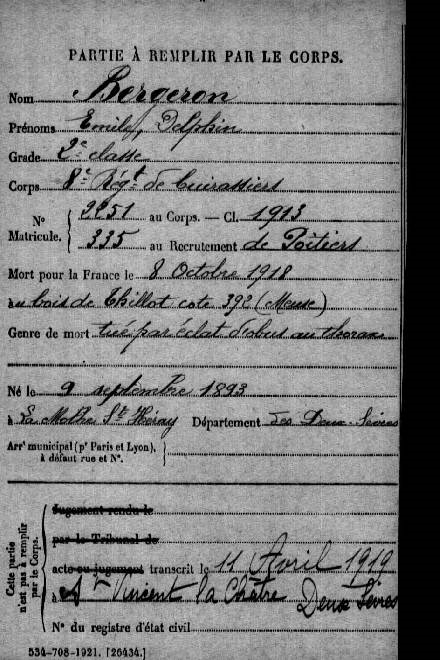 PARTIE À REMPLIR PAR LE CORPS.
Nom Bergeron
Prénoms Emile, Delphin
Grade 2e classe
Corps 8e Régt de Cuirassiers
No Matricule. 2251 au Corps. — Cl. 1913
335 au Recrutement de Poitiers
Mort pour la France le 8 Octobre 1918
au bois de Thillot cote 392 (Meuse)
Genre de mort tué par éclat d'obus au thorax
Né le 9 septembre 1893
à La Mothe St Héray Département des Deux-Sèvres
Arrt municipal (pr Paris et Lyon), à défaut rue et No.
Cette partie n'est pas à remplir par le Corps.
Jugement rendu le
par le Tribunal de
acte ou jugement transcrit le 11 Avril 1919
à St Vincent la Châtre Deux Sèvres
No du registre d'état civil
534-708-1921. [26434.]